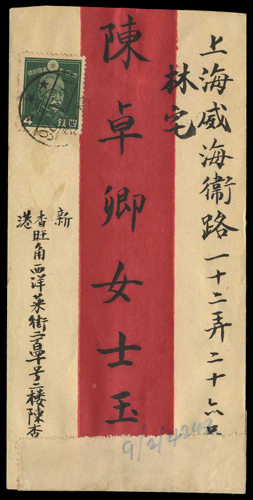 上海威海衛路一十二弄二十六号
林宅
陳卓卿女士玉
新
香港旺角西洋菜街二百單号二楼陳杏
四銭
4
9/2/42